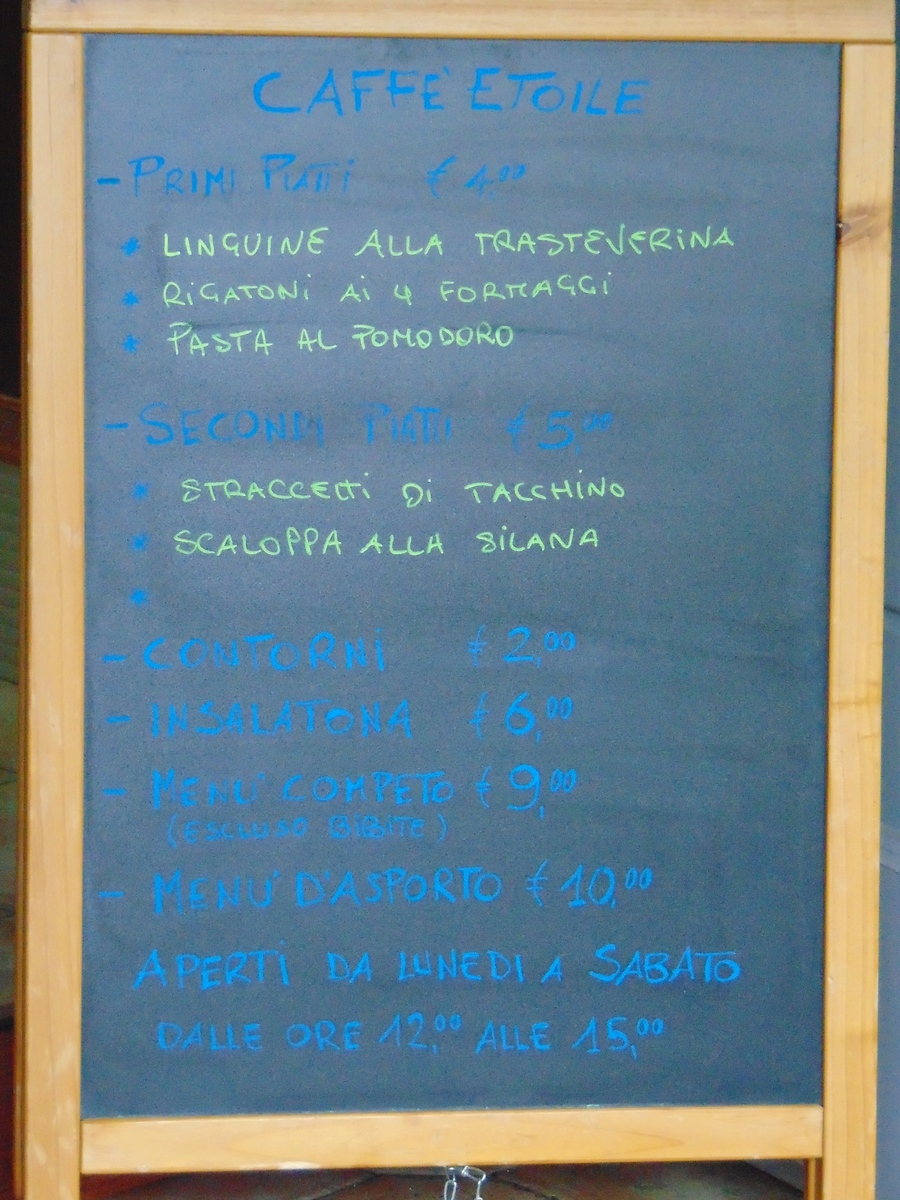 CAFFE' ETOILE
- PRIMI PIATTI € 4,00
* LINGUINE ALLA TRASTEVERINA
* RIGATONI AI 4 FORMAGGI
* PASTA AL POMODORO
- SECONDI PIATTI € 5,00
* STRACCETTI DI TACCHINO
* SCALOPPA ALLA SILANA
*
- CONTORNI € 2,00
- INSALATONA € 6,00
- MENU' COMPETO € 9,00
(ESCLUSO BIBITE)
- MENU' D'ASPORTO € 10,00
APERTI DA LUNEDI A SABATO
DALLE ORE 12,00 ALLE 15,00